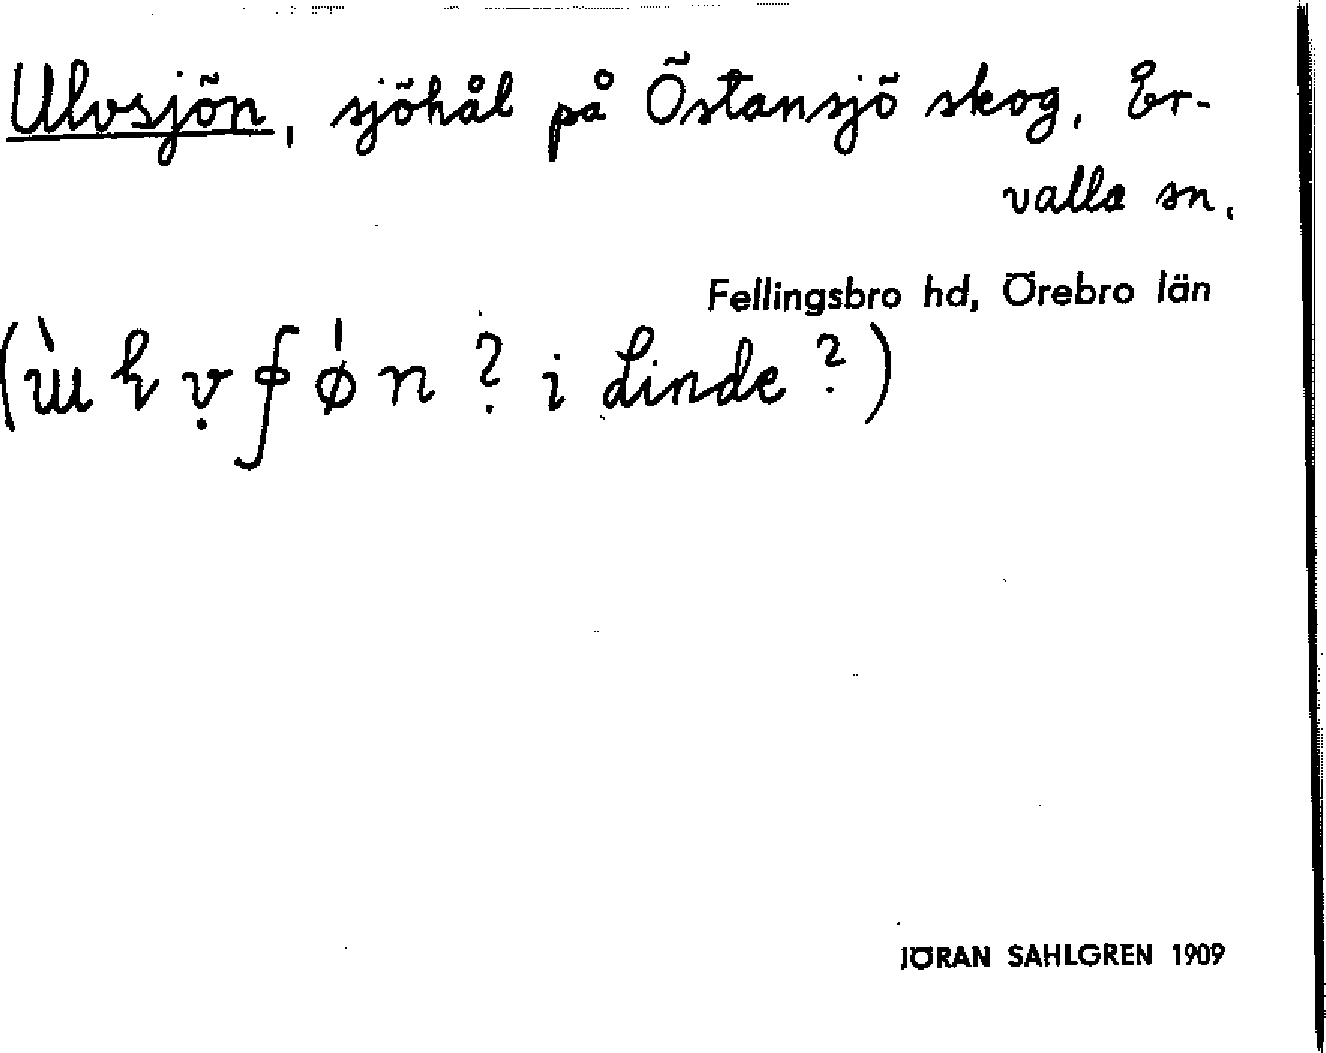 Ulvsjön, sjöhål på Östansjö skog, Er-
valla sn.
Fellingsbro hd, Örebro län
? i Linde ?)
JÖRAN SAHLGREN 1909